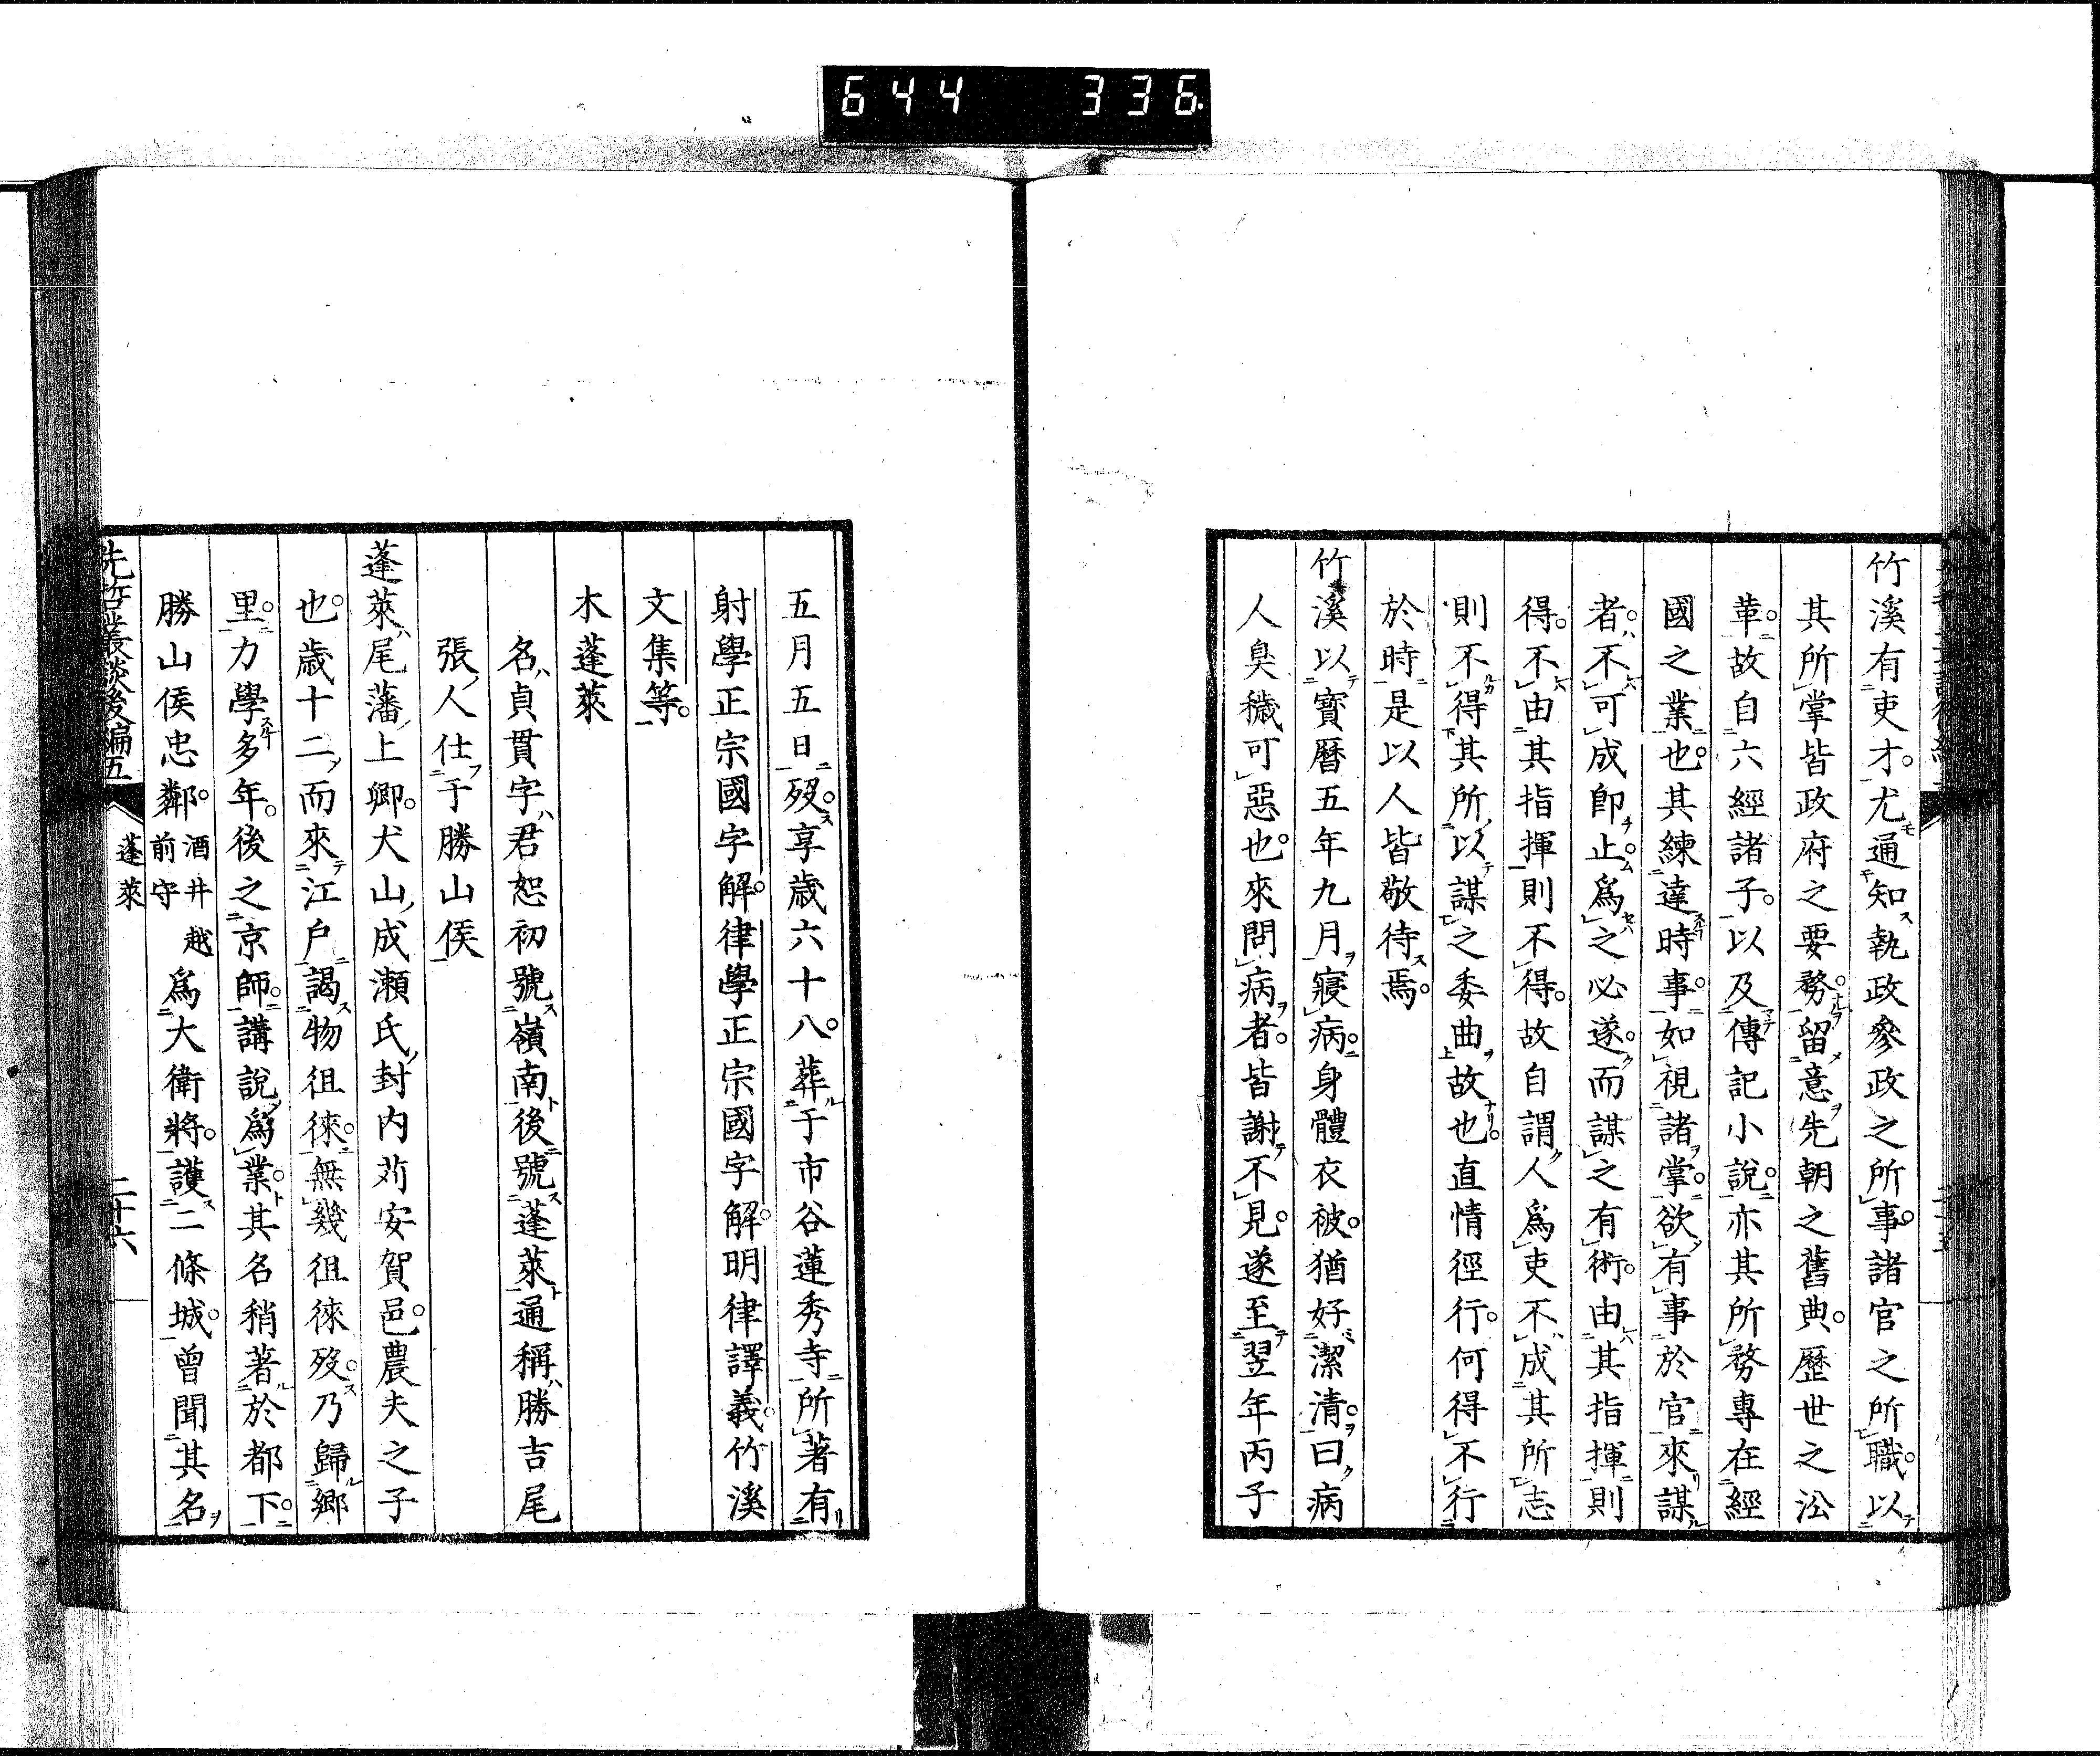 644 336
竹溪有吏才。尤通知執政參政之所事。諸官之所職。以
其所掌皆政府之要務。留意先朝之舊典。歷世之沿
革。故自六經諸子。以及傳記小說。亦其所務專在經
國之業也。其練達時事。如視諸掌。欲有事於官來謀
者。不可成卽止。爲之必遂。而謀之有術。由其指揮則
得。不由其指揮則不得。故自謂人爲吏不成其所志
則不得其所以謀之委曲故也。直情徑行。何得不行
於時是以人皆敬待焉。
竹溪以寶曆五年九月寢病。身體衣被。猶好潔清。曰病
人臭穢可惡也。來問病者。皆謝不見。遂至翌年丙子
五月五日歿。享歲六十八。葬于市谷蓮秀寺所著有
射學正宗國字解。律學正宗國字解。明律譯義。竹溪
文集等。
木蓬萊
名貞貫字君恕初號嶺南後號蓬萊通稱勝吉尾
張人仕于勝山侯
蓬萊尾藩上卿。犬山成瀨氏封内苅安賀邑。農夫之子
也。歲十二而來江戶謁物徂徠。無幾徂徠歿。乃歸鄉
里。力學多年。後之京師。講說爲業。其名稍著於都下。
勝山侯忠鄰。酒井越前守爲大衛將。護二條城。曾聞其名
先哲叢談後編五
蓬萊
二十六